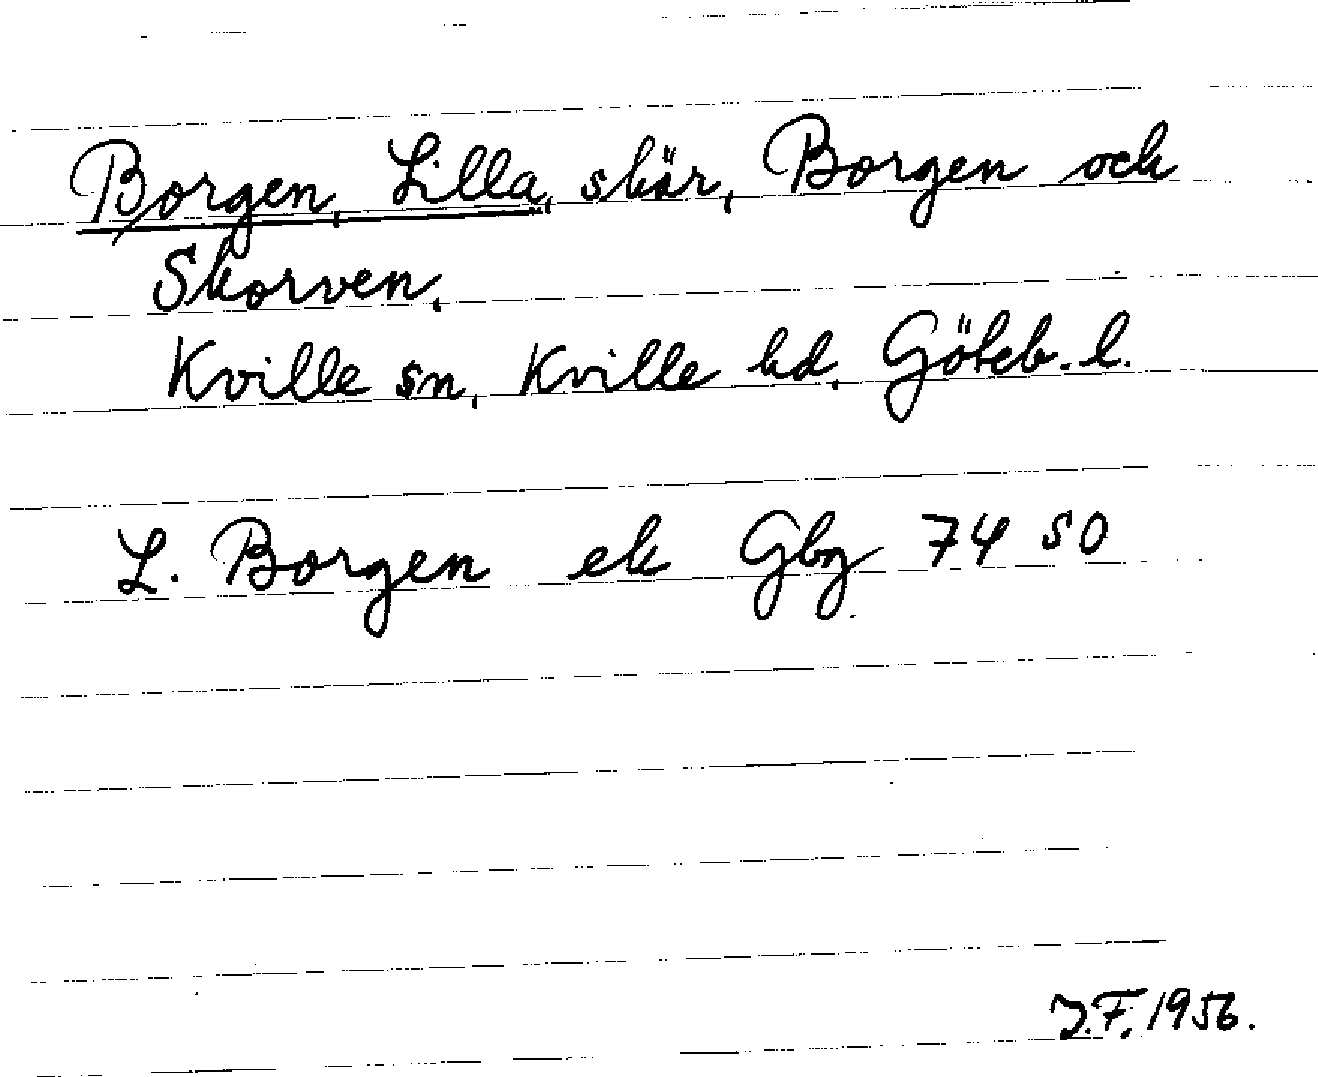 Borgen, Lilla, skär, Borgen och
Skorven.
Kville sn, Kville hd, Göteb. l.
L. Borgen ek Gbg 74 SO
J.F. 1956.